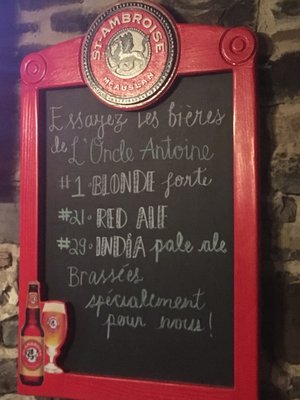 ST-AMBROISE
McAUSLAN
Essayez les bières
de L'Oncle Antoine
#1 • BLONDE forte
#21 • RED ALE
#29 • INDIA pale ale
Brassées
spécialement
pour nous!